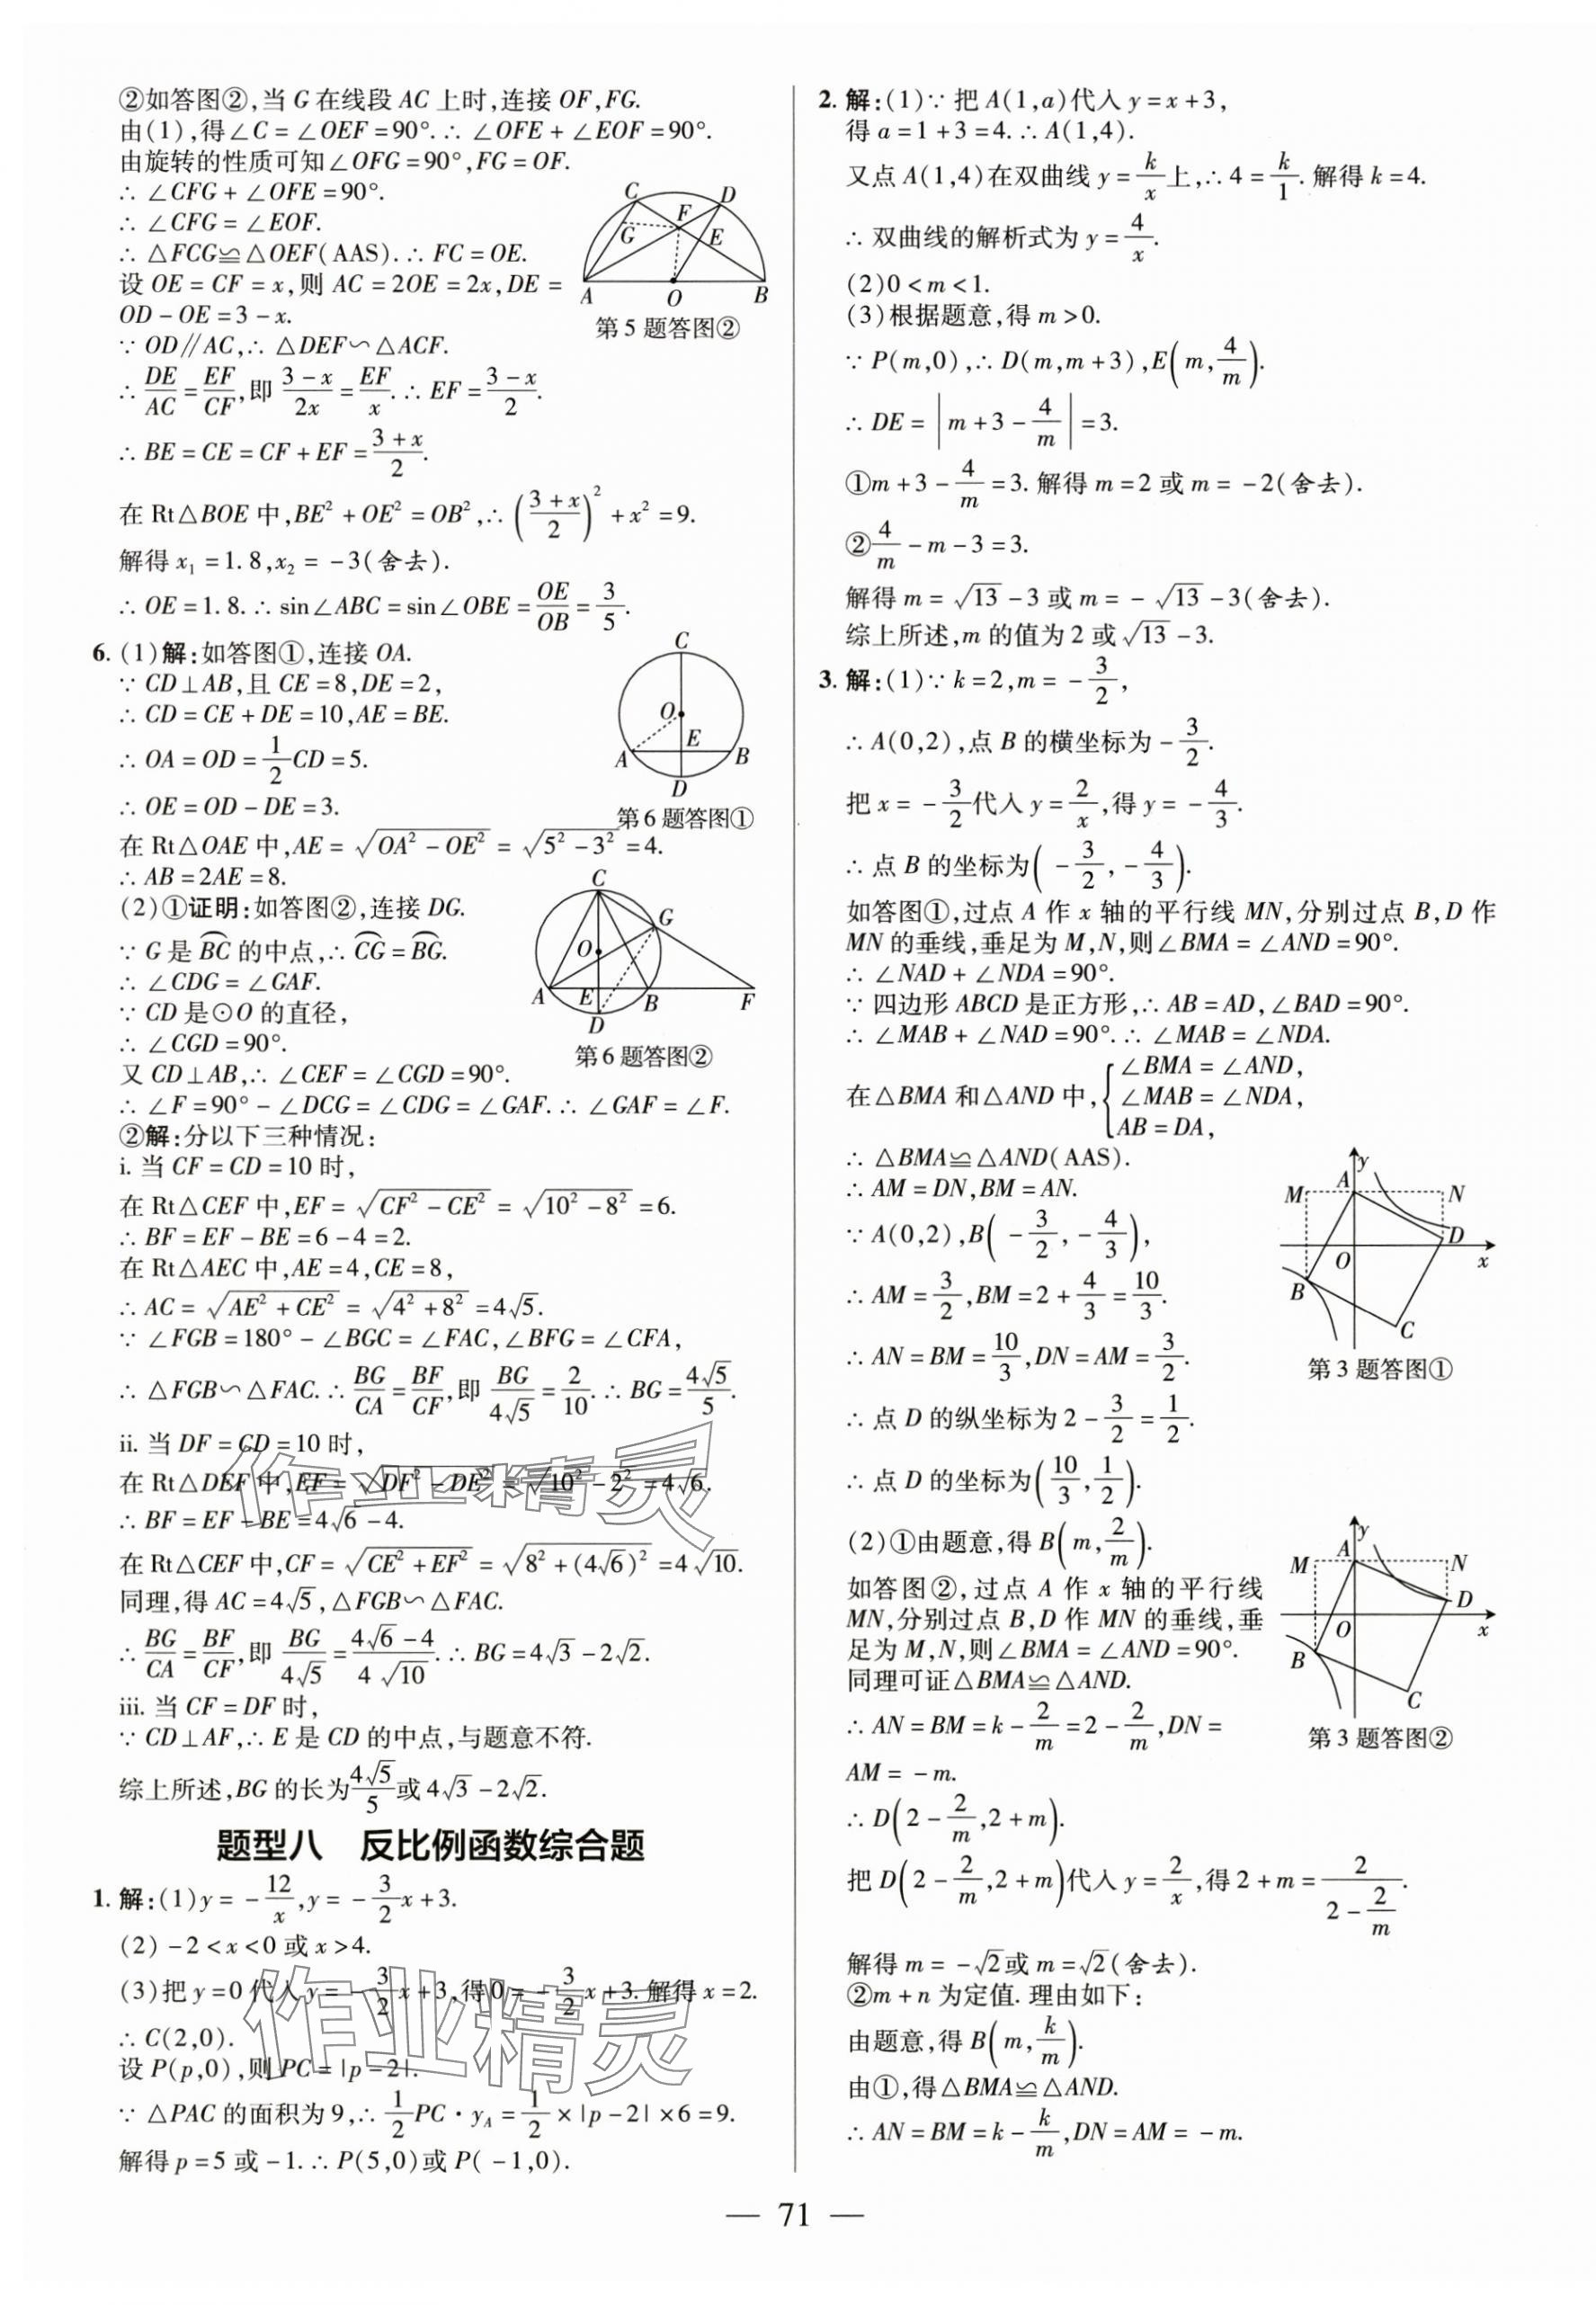 ②如答图②,当 G 在线段 AC 上时,连接 OF,FG.
由(1),得∠C=∠OEF=90°.∴ ∠OFE+∠EOF=90°.
由旋转的性质可知∠OFG=90°,FG=OF.
∴ ∠CFG+∠OFE=90°.
∴ ∠CFG=∠EOF.
∴ △FCG≌△OEF(AAS).∴ FC=OE.
设 OE=CF=x,则 AC=2OE=2x,DE=
OD-OE=3-x.
∵ OD∥AC,∴ △DEF∽△ACF.
∴ DE/AC=EF/CF,即 (3-x)/2x=EF/x.∴ EF=(3-x)/2.
∴ BE=CE=CF+EF=(3+x)/2.
在 Rt△BOE 中,BE²+OE²=OB²,∴ ((3+x)/2)²+x²=9.
解得 x₁=1.8,x₂=-3(舍去).
∴ OE=1.8.∴ sin∠ABC=sin∠OBE=OE/OB=3/5.
C D F G E A O B
第 5 题答图②
6. (1)解:如答图①,连接 OA.
∵ CD⊥AB,且 CE=8,DE=2,
∴ CD=CE+DE=10,AE=BE.
∴ OA=OD=1/2 CD=5.
∴ OE=OD-DE=3.
在 Rt△OAE 中,AE=√(OA²-OE²)=√(5²-3²)=4.
∴ AB=2AE=8.
C O E A B D
第 6 题答图①
(2)①证明:如答图②,连接 DG.
∵ G 是 BC⌒ 的中点,∴ CG⌒=BG⌒.
∴ ∠CDG=∠GAF.
∵ CD 是⊙O 的直径,
∴ ∠CGD=90°.
又 CD⊥AB,∴ ∠CEF=∠CGD=90°.
∴ ∠F=90°-∠DCG=∠CDG=∠GAF.∴ ∠GAF=∠F.
C G O A E B F D
第 6 题答图②
②解:分以下三种情况:
i. 当 CF=CD=10 时,
在 Rt△CEF 中,EF=√(CF²-CE²)=√(10²-8²)=6.
∴ BF=EF-BE=6-4=2.
在 Rt△AEC 中,AE=4,CE=8,
∴ AC=√(AE²+CE²)=√(4²+8²)=4√5.
∵ ∠FGB=180°-∠BGC=∠FAC,∠BFG=∠CFA,
∴ △FGB∽△FAC.∴ BG/CA=BF/CF,即 BG/4√5=2/10.∴ BG=4√5/5.
ii. 当 DF=CD=10 时,
在 Rt△DEF 中,EF=√(DF²-DE²)=√(10²-2²)=4√6.
∴ BF=EF-BE=4√6-4.
在 Rt△CEF 中,CF=√(CE²+EF²)=√(8²+(4√6)²)=4√10.
同理,得 AC=4√5,△FGB∽△FAC.
∴ BG/CA=BF/CF,即 BG/4√5=(4√6-4)/4√10.∴ BG=4√3-2√2.
iii. 当 CF=DF 时,
∵ CD⊥AF,∴ E 是 CD 的中点,与题意不符.
综上所述,BG 的长为4√5/5或 4√3-2√2.
作业精灵
题型八 反比例函数综合题
1. 解:(1)y=-12/x,y=-3/2 x+3.
(2)-2<x<0 或 x>4.
(3)把 y=0 代入 y=-3/2 x+3,得 0=-3/2 x+3. 解得 x=2.
∴ C(2,0).
设 P(p,0),则 PC=|p-2|.
∵ △PAC 的面积为 9,∴ 1/2 PC·y_A=1/2×|p-2|×6=9.
解得 p=5 或 -1.∴ P(5,0)或 P(-1,0).
作业精灵
2. 解:(1)∵ 把 A(1,a)代入 y=x+3,
得 a=1+3=4.∴ A(1,4).
又点 A(1,4)在双曲线 y=k/x上,∴ 4=k/1. 解得 k=4.
∴ 双曲线的解析式为 y=4/x.
(2)0<m<1.
(3)根据题意,得 m>0.
∵ P(m,0),∴ D(m,m+3),E(m,4/m).
∴ DE=|m+3-4/m|=3.
①m+3-4/m=3. 解得 m=2 或 m=-2(舍去).
②4/m-m-3=3.
解得 m=√13-3 或 m=-√13-3(舍去).
综上所述,m 的值为 2 或√13-3.
3. 解:(1)∵ k=2,m=-3/2,
∴ A(0,2),点 B 的横坐标为-3/2.
把 x=-3/2代入 y=2/x,得 y=-4/3.
∴ 点 B 的坐标为(-3/2,-4/3).
如答图①,过点 A 作 x 轴的平行线 MN,分别过点 B,D 作
MN 的垂线,垂足为 M,N,则∠BMA=∠AND=90°.
∴ ∠NAD+∠NDA=90°.
∵ 四边形 ABCD 是正方形,∴ AB=AD,∠BAD=90°.
∴ ∠MAB+∠NAD=90°.∴ ∠MAB=∠NDA.
在△BMA 和△AND 中,{∠BMA=∠AND,
∠MAB=∠NDA,
AB=DA,
∴ △BMA≌△AND(AAS).
∴ AM=DN,BM=AN.
∵ A(0,2),B(-3/2,-4/3),
∴ AM=3/2,BM=2+4/3=10/3.
∴ AN=BM=10/3,DN=AM=3/2.
∴ 点 D 的纵坐标为 2-3/2=1/2.
∴ 点 D 的坐标为(10/3,1/2).
y A M N D O x B C
第 3 题答图①
(2)①由题意,得 B(m,2/m).
如答图②,过点 A 作 x 轴的平行线
MN,分别过点 B,D 作 MN 的垂线,垂
足为 M,N,则∠BMA=∠AND=90°.
同理可证△BMA≌△AND.
∴ AN=BM=k-2/m=2-2/m,DN=
AM=-m.
y A M N D O x B C
第 3 题答图②
∴ D(2-2/m,2+m).
把 D(2-2/m,2+m)代入 y=2/x,得 2+m=2/(2-2/m).
解得 m=-√2或 m=√2(舍去).
②m+n 为定值. 理由如下:
由题意,得 B(m,k/m).
由①,得△BMA≌△AND.
∴ AN=BM=k-k/m,DN=AM=-m.
— 71 —